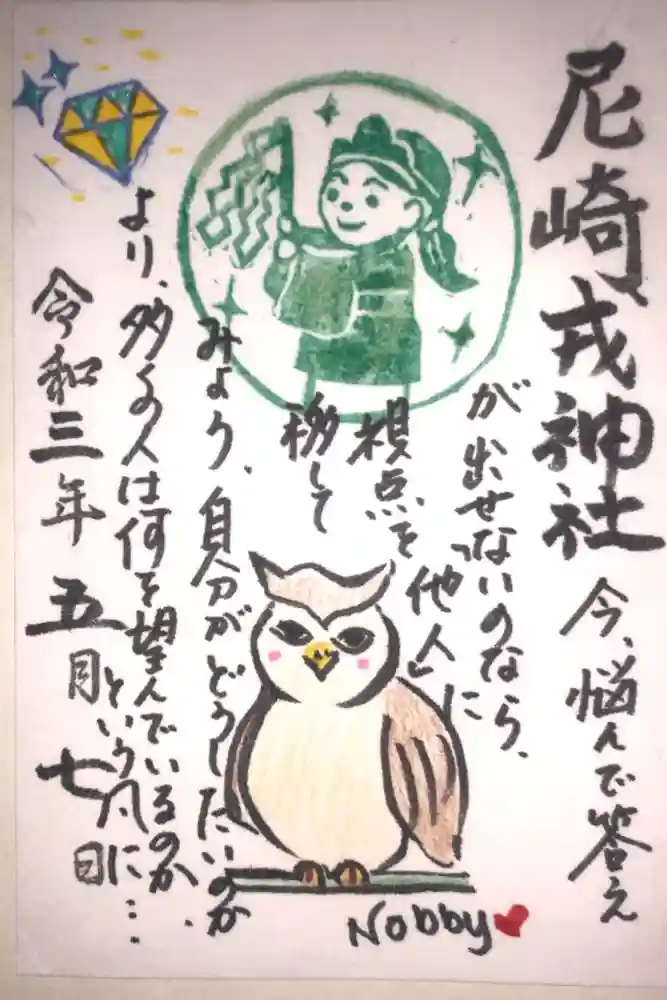 尼崎戎神社
今、悩んで答え
が出せないのなら、
「他人」に
視点を
移して
みよう、自分がどうしたいのか
より、多くの人は何を望んでいるのか
という風に…
令和三年五月七日
Nobby